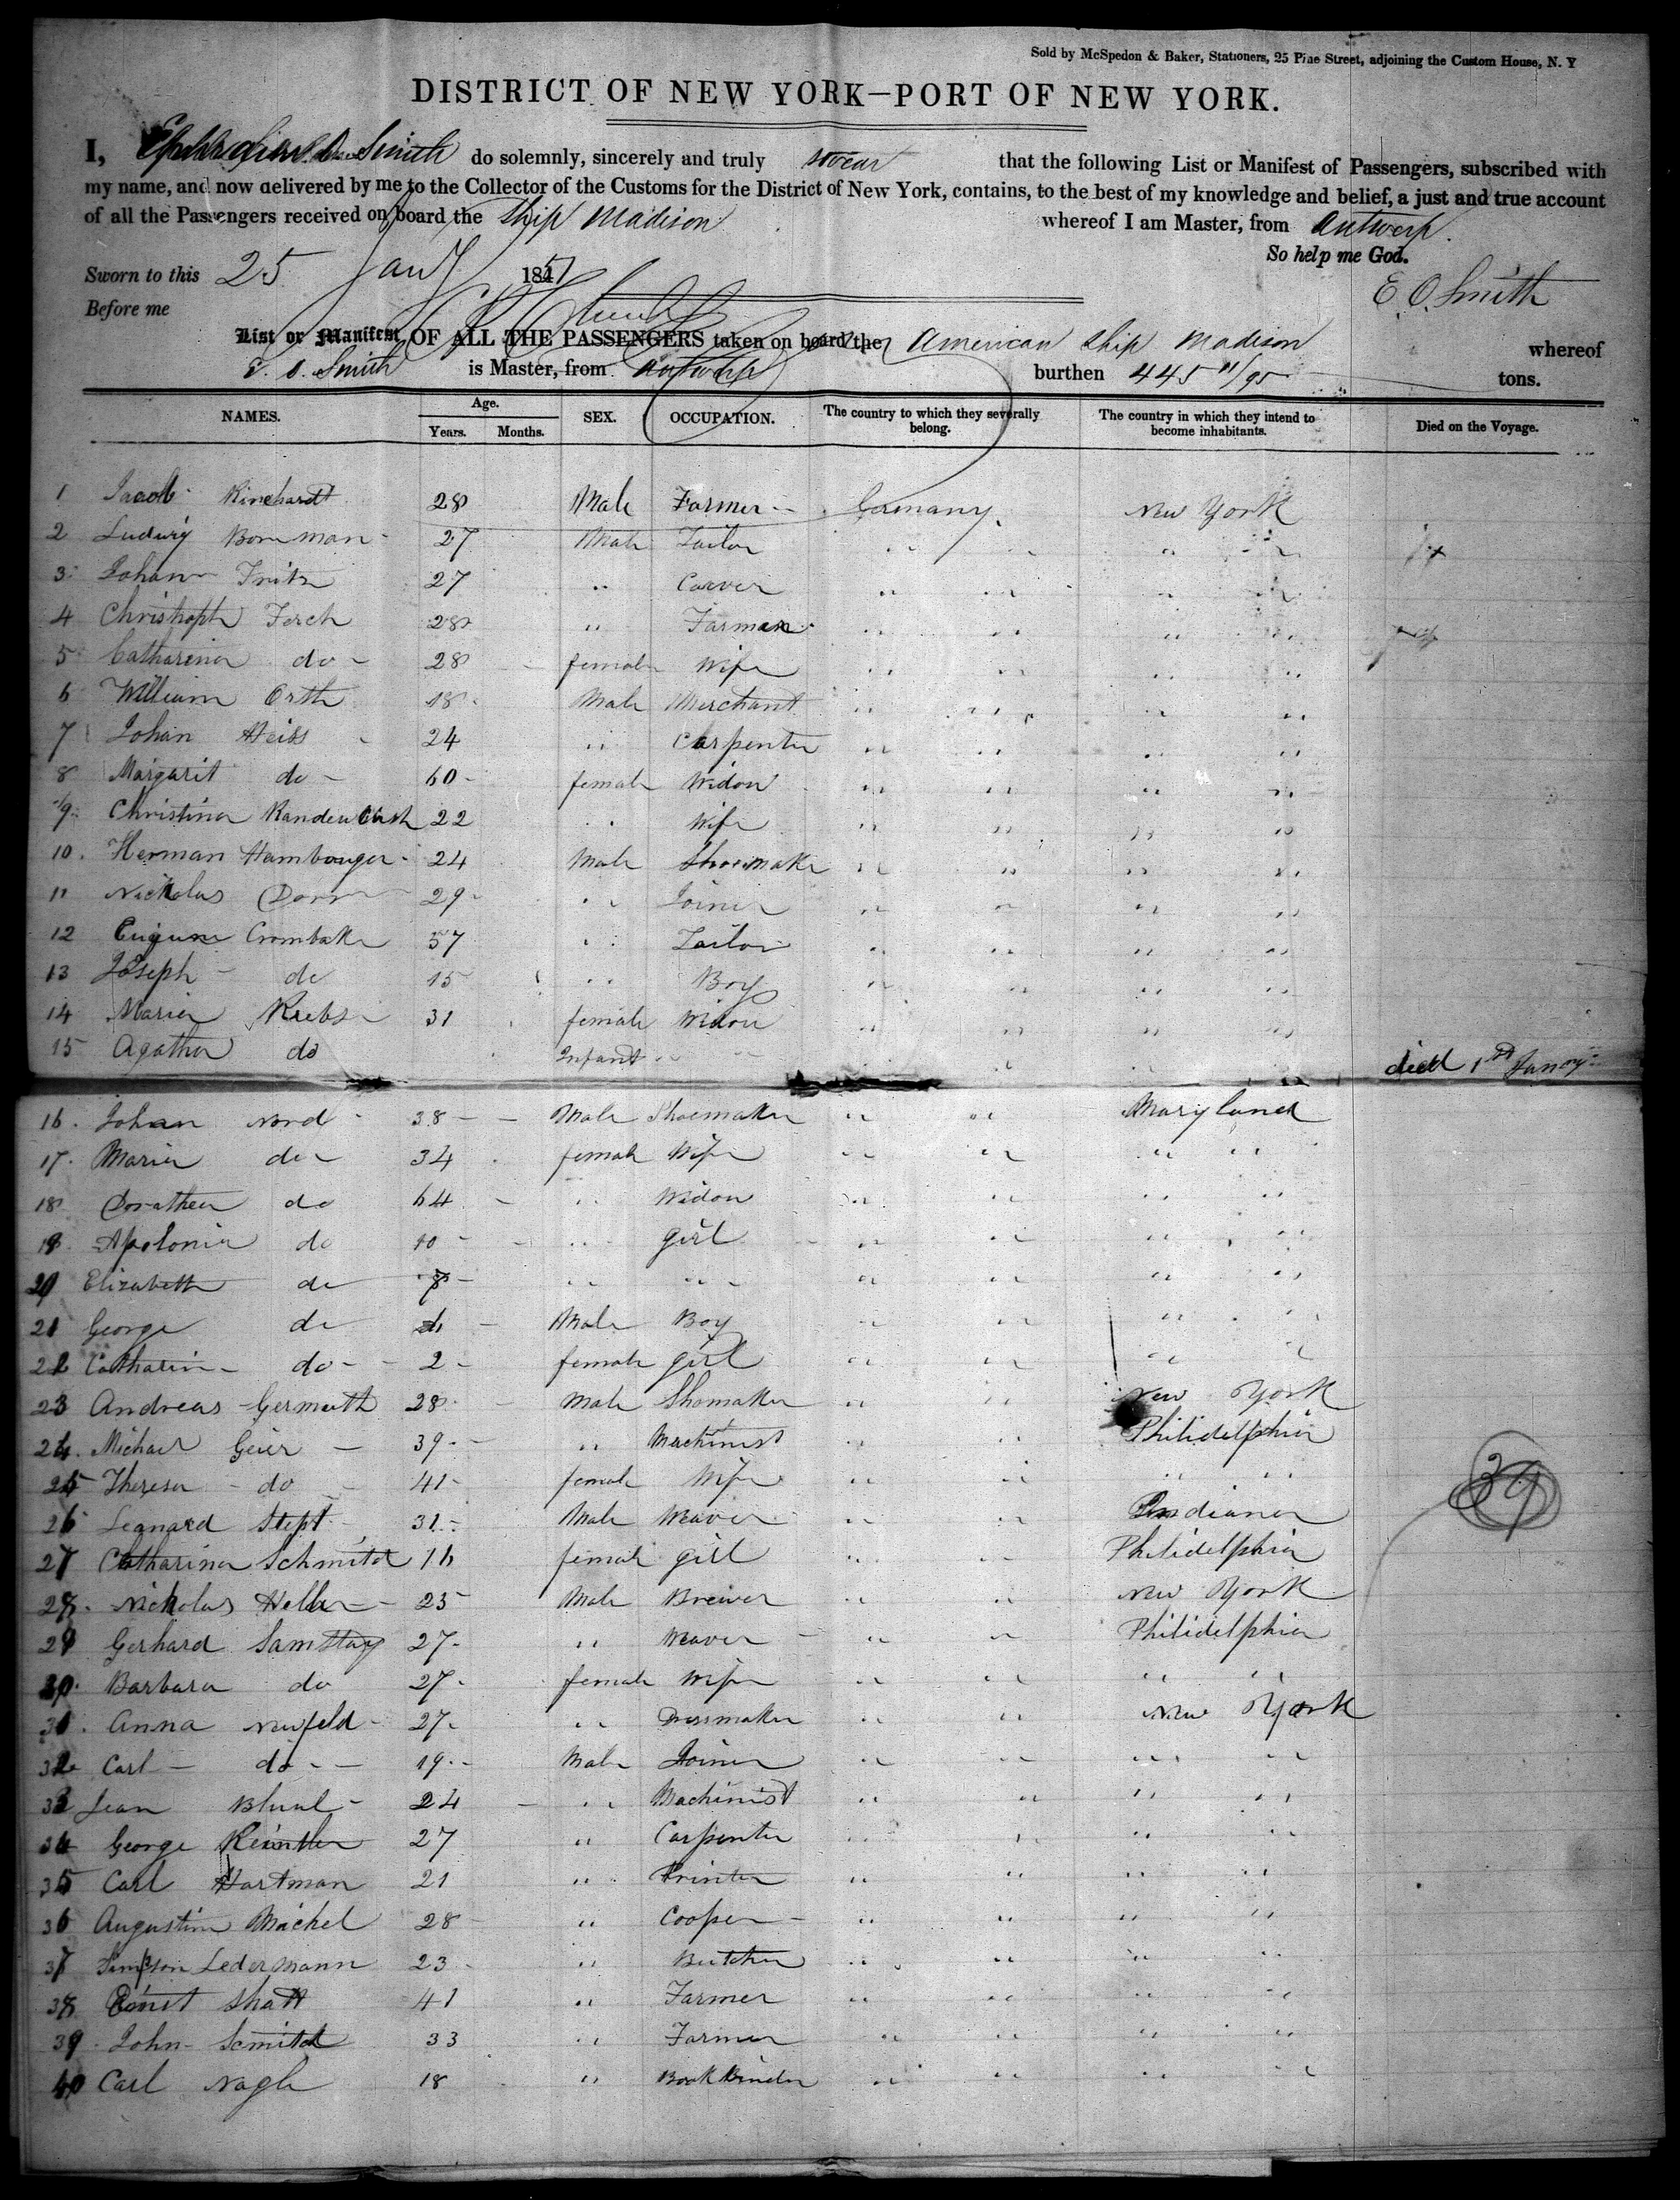 Sold by McSpedon & Baker, Stationers, 25 Pine Street, adjoining the Custom House, N. Y
DISTRICT OF NEW YORK—PORT OF NEW YORK.
I, Smith do solemnly, sincerely and truly swear that the following List or Manifest of Passengers, subscribed with
my name, and now delivered by me to the Collector of the Customs for the District of New York, contains, to the best of my knowledge and belief, a just and true account
of all the Passengers received on board the Ship Madison whereof I am Master, from Antwerp.
So help me God.
Sworn to this 25 Jany 1851
E. O. Smith
Before me
List or Manifest OF ALL THE PASSENGERS taken on board the American Ship Madison whereof
E. O. Smith is Master, from Antwerp burthen 445 11/95 tons.
NAMES. Age. Years. Months. SEX. OCCUPATION. The country to which they severally belong. The country in which they intend to become inhabitants. Died on the Voyage.
1 Jacob Rinehardt 28 Male Farmer Germany New York
2 Ludwig Bornman 27 Male Tailor " " " "
3 Johann Fritz 27 " Carver " " " "
4 Christoph Ferch 28 " Farmer " " " "
5 Catharina do 28 female Wife " " " "
6 William Orth 18 Male Merchant " " " "
7 Johan Heiss 24 " Carpenter " " " "
8 Margarit do 60 female Widow " " " "
9 Christina 22 " Wife " " " "
10 Herman Hambouger 24 Male Shoemaker " " " "
11 Nickolus Dorr 29 " Joiner " " " "
12 Crombake 37 " Tailor " " " "
13 Joseph do 15 " Boy " " " "
14 Maria Krebs 31 female Widow " " " "
15 Agatha do Infant " " " " " " died 1st Jany
16 Johan Nord 38 Male Shoemaker " " Maryland
17 Maria do 34 female Wife " " " "
18 Dorathea do 64 " Widow " " " "
19 Apolonia do 10 " girl " " " "
20 Elizabeth do 8 " " " " " " "
21 George do Male Boy " " " "
22 Catharin do 2 female girl " " " "
23 Andreas Germuth 28 Male Shomaker " " New York
24 Michael Geier 39 " Machinist " " Philidelphia
25 Theresa do 41 female Wife " " " "
26 Leonard Stept 31 Male Weaver " " Indiana
27 Catharina Schmitd 16 female girl " " Philidelphia
28 Nickolus Heller 25 Male Brewer " " New York
29 Gerhard Samstay 27 " Weaver " " Philidelphia
30 Barbara do 27 female Wife " " " "
31 Anna Neufeld 27 " Dressmaker " " New York
32 Carl do 19 Male Joiner " " " "
33 Jean Blunl 24 " Machinist " " " "
34 George Reinttler 27 " Carpenter " " " "
35 Carl Hartman 21 " Printer " " " "
36 Augustin Machel 28 " Cooper " " " "
37 Simpson Ledermann 23 " Butcher " " " "
38 Ernst Shatt 41 " Farmer " " " "
39 John Scmitd 33 " Farmer " " " "
40 Carl Nagle 18 " Bookbinder " " " "
39